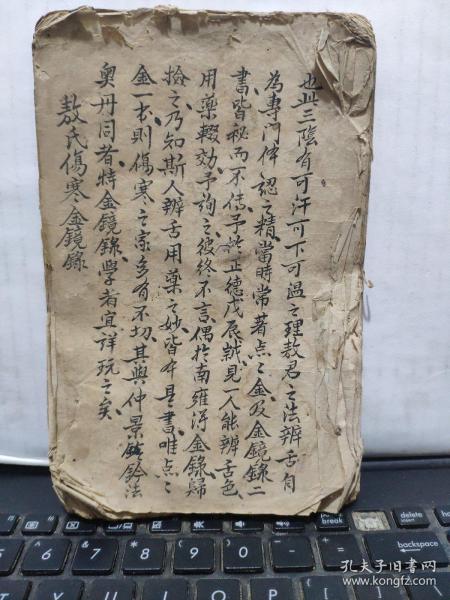 也此三陰有可汗可下可溫之理敖君之法辨舌自
為專門体認之精當時常著点点金及金鏡錄二
書皆秘而不傳予於正德戊辰見一人能辨舌色
用藥輟効予詢之彼終不言偶於南雍得金錄歸
撿之乃知斯人辨舌用藥之妙皆本是書唯点点
金一書則傷寒之家多有不切其與仲景鈐法
奥丹同者特金鏡錄學者宜詳玩之矣
敖氏傷寒金鏡錄
pause
break
delete
insert
backspace
home
5
6
7
8
9
0
孔夫子旧书网
www.kongfz.com